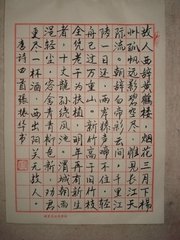 故人西辞黄鹤楼烟花三月下扬
州孤帆远影碧空尽唯见长江天
际流。朝辞白帝彩云间千里江
陵一日还两岸猿声啼不住轻
舟已过万重山。新竹高于旧竹枝
全凭老干为扶持明年再有新生
者十丈龙孙绕凤池。渭城朝雨
浥轻尘客舍青青柳色新劝君
更尽一杯酒西出阳关无故人。
唐诗四首张华书